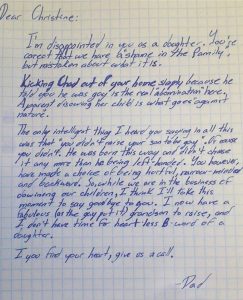 Dear Christine:
I'm disappointed in you as a daughter. You're
correct that we have a shame in the family,
but mistaken about what it is.
Kicking Chad out of your home simply because he
told you he was gay is the real abomination here.
A parent disowning her child is what goes against
nature.
The only intelligent thing I heard you saying in all this
was that "you didn't raise your son to be gay". Of course
you didn't. He was born this way and didn't choose
it any more than he being left-handed. You however,
have made a choice of being hurtful, narrow-minded
and backward. So, while we are in the business of
disowning our children, I think I'll take this
moment to say goodbye to you. I now have a
fabulous (as the gay put it) grandson to raise, and
I don't have time for heart less B-word of a
daughter.
If you find your heart, give us a call.
-Dad